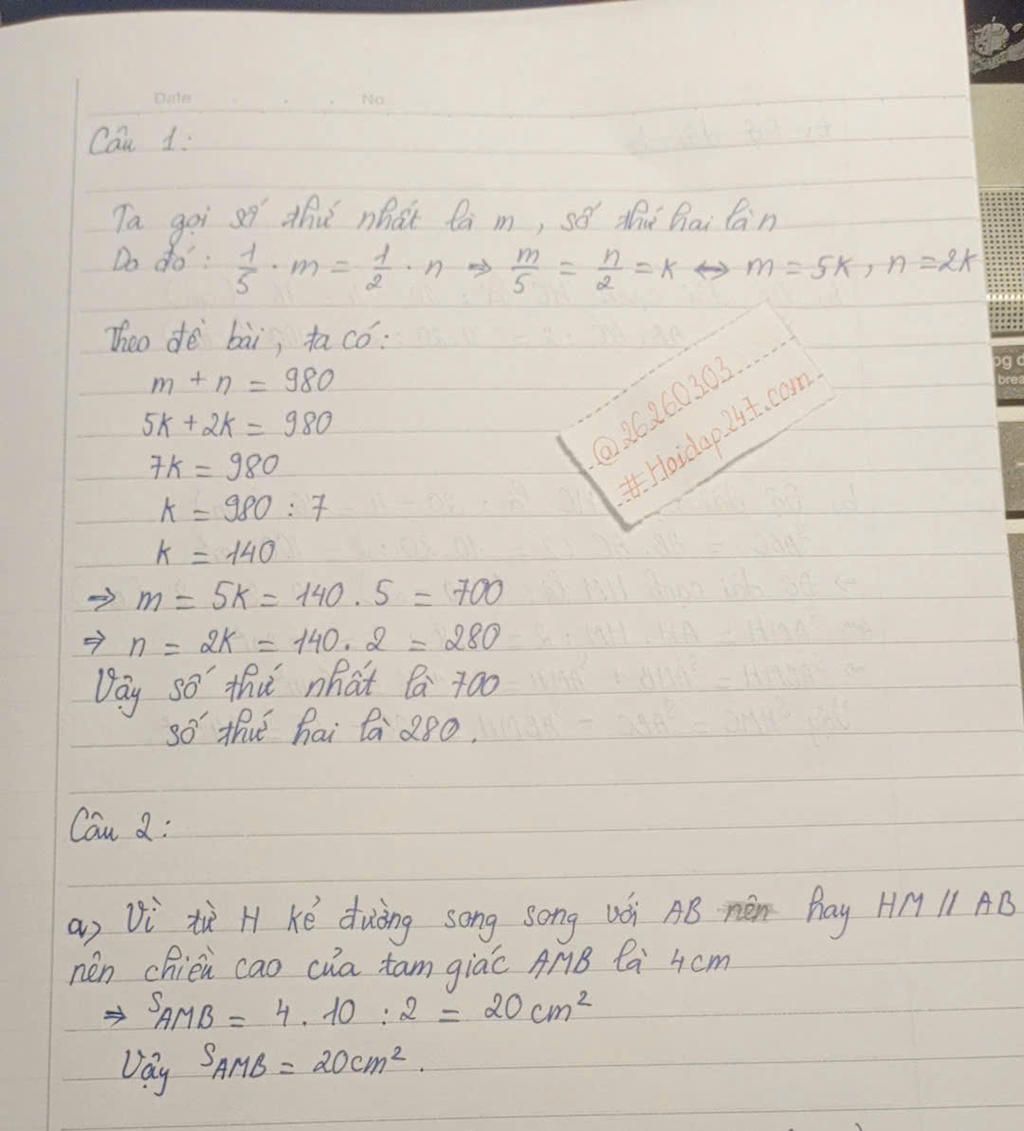 Date . . . No
Câu 1:
Ta gọi số thứ nhất là m, số thứ hai là n
Do đó: 1/5 . m = 1/2 . n => m/5 = n/2 = k <=> m = 5k, n = 2k
Theo đề bài, ta có:
m + n = 980
5k + 2k = 980
7k = 980
k = 980 : 7
k = 140
=> m = 5k = 140 . 5 = 700
=> n = 2k = 140 . 2 = 280
Vậy số thứ nhất là 700
số thứ hai là 280.
@26260303
#Hoidap247.com
Câu 2:
a) Vì từ H kẻ đường song song với AB nên hay HM // AB
nên chiều cao của tam giác AMB là 4cm
=> SAMB = 4 . 10 : 2 = 20 cm²
Vậy SAMB = 20cm².